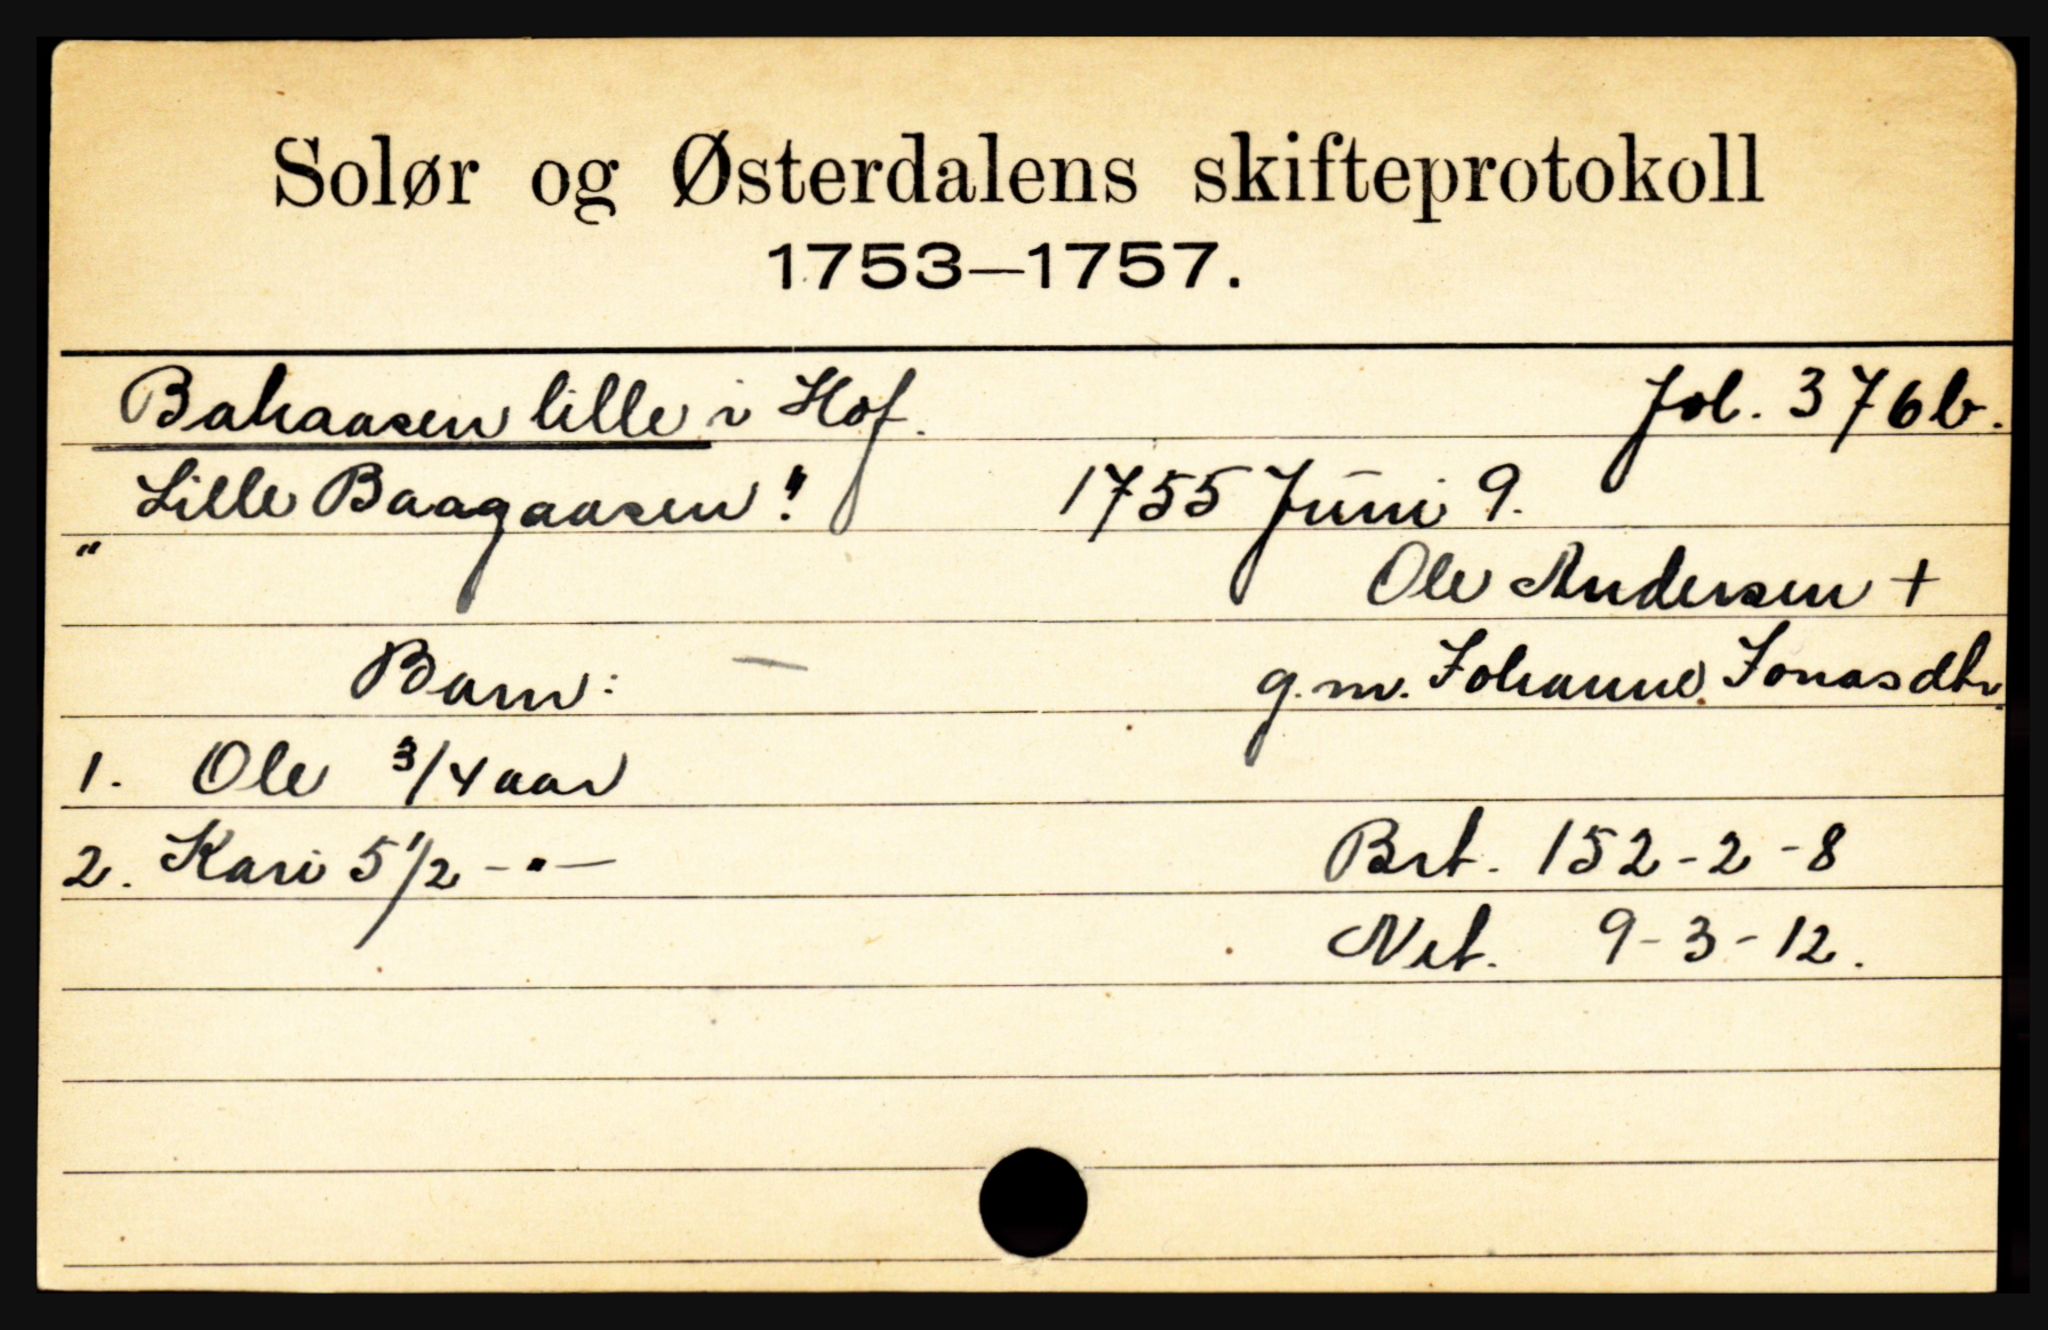 Solør og Østerdalens skifteprotokoll
1753—1757.
Bahaasen lille i Hof. Fol. 376b.
"Lille Baagaasen" 1755 Juni 9.
Ole Andersen +
Barn: — g.m. Johanne Jonasdtr.
1. Ole 3/4 aar
2. Kari 5 1/2 -"- Brt. 152-2-8
Net. 9-3-12.